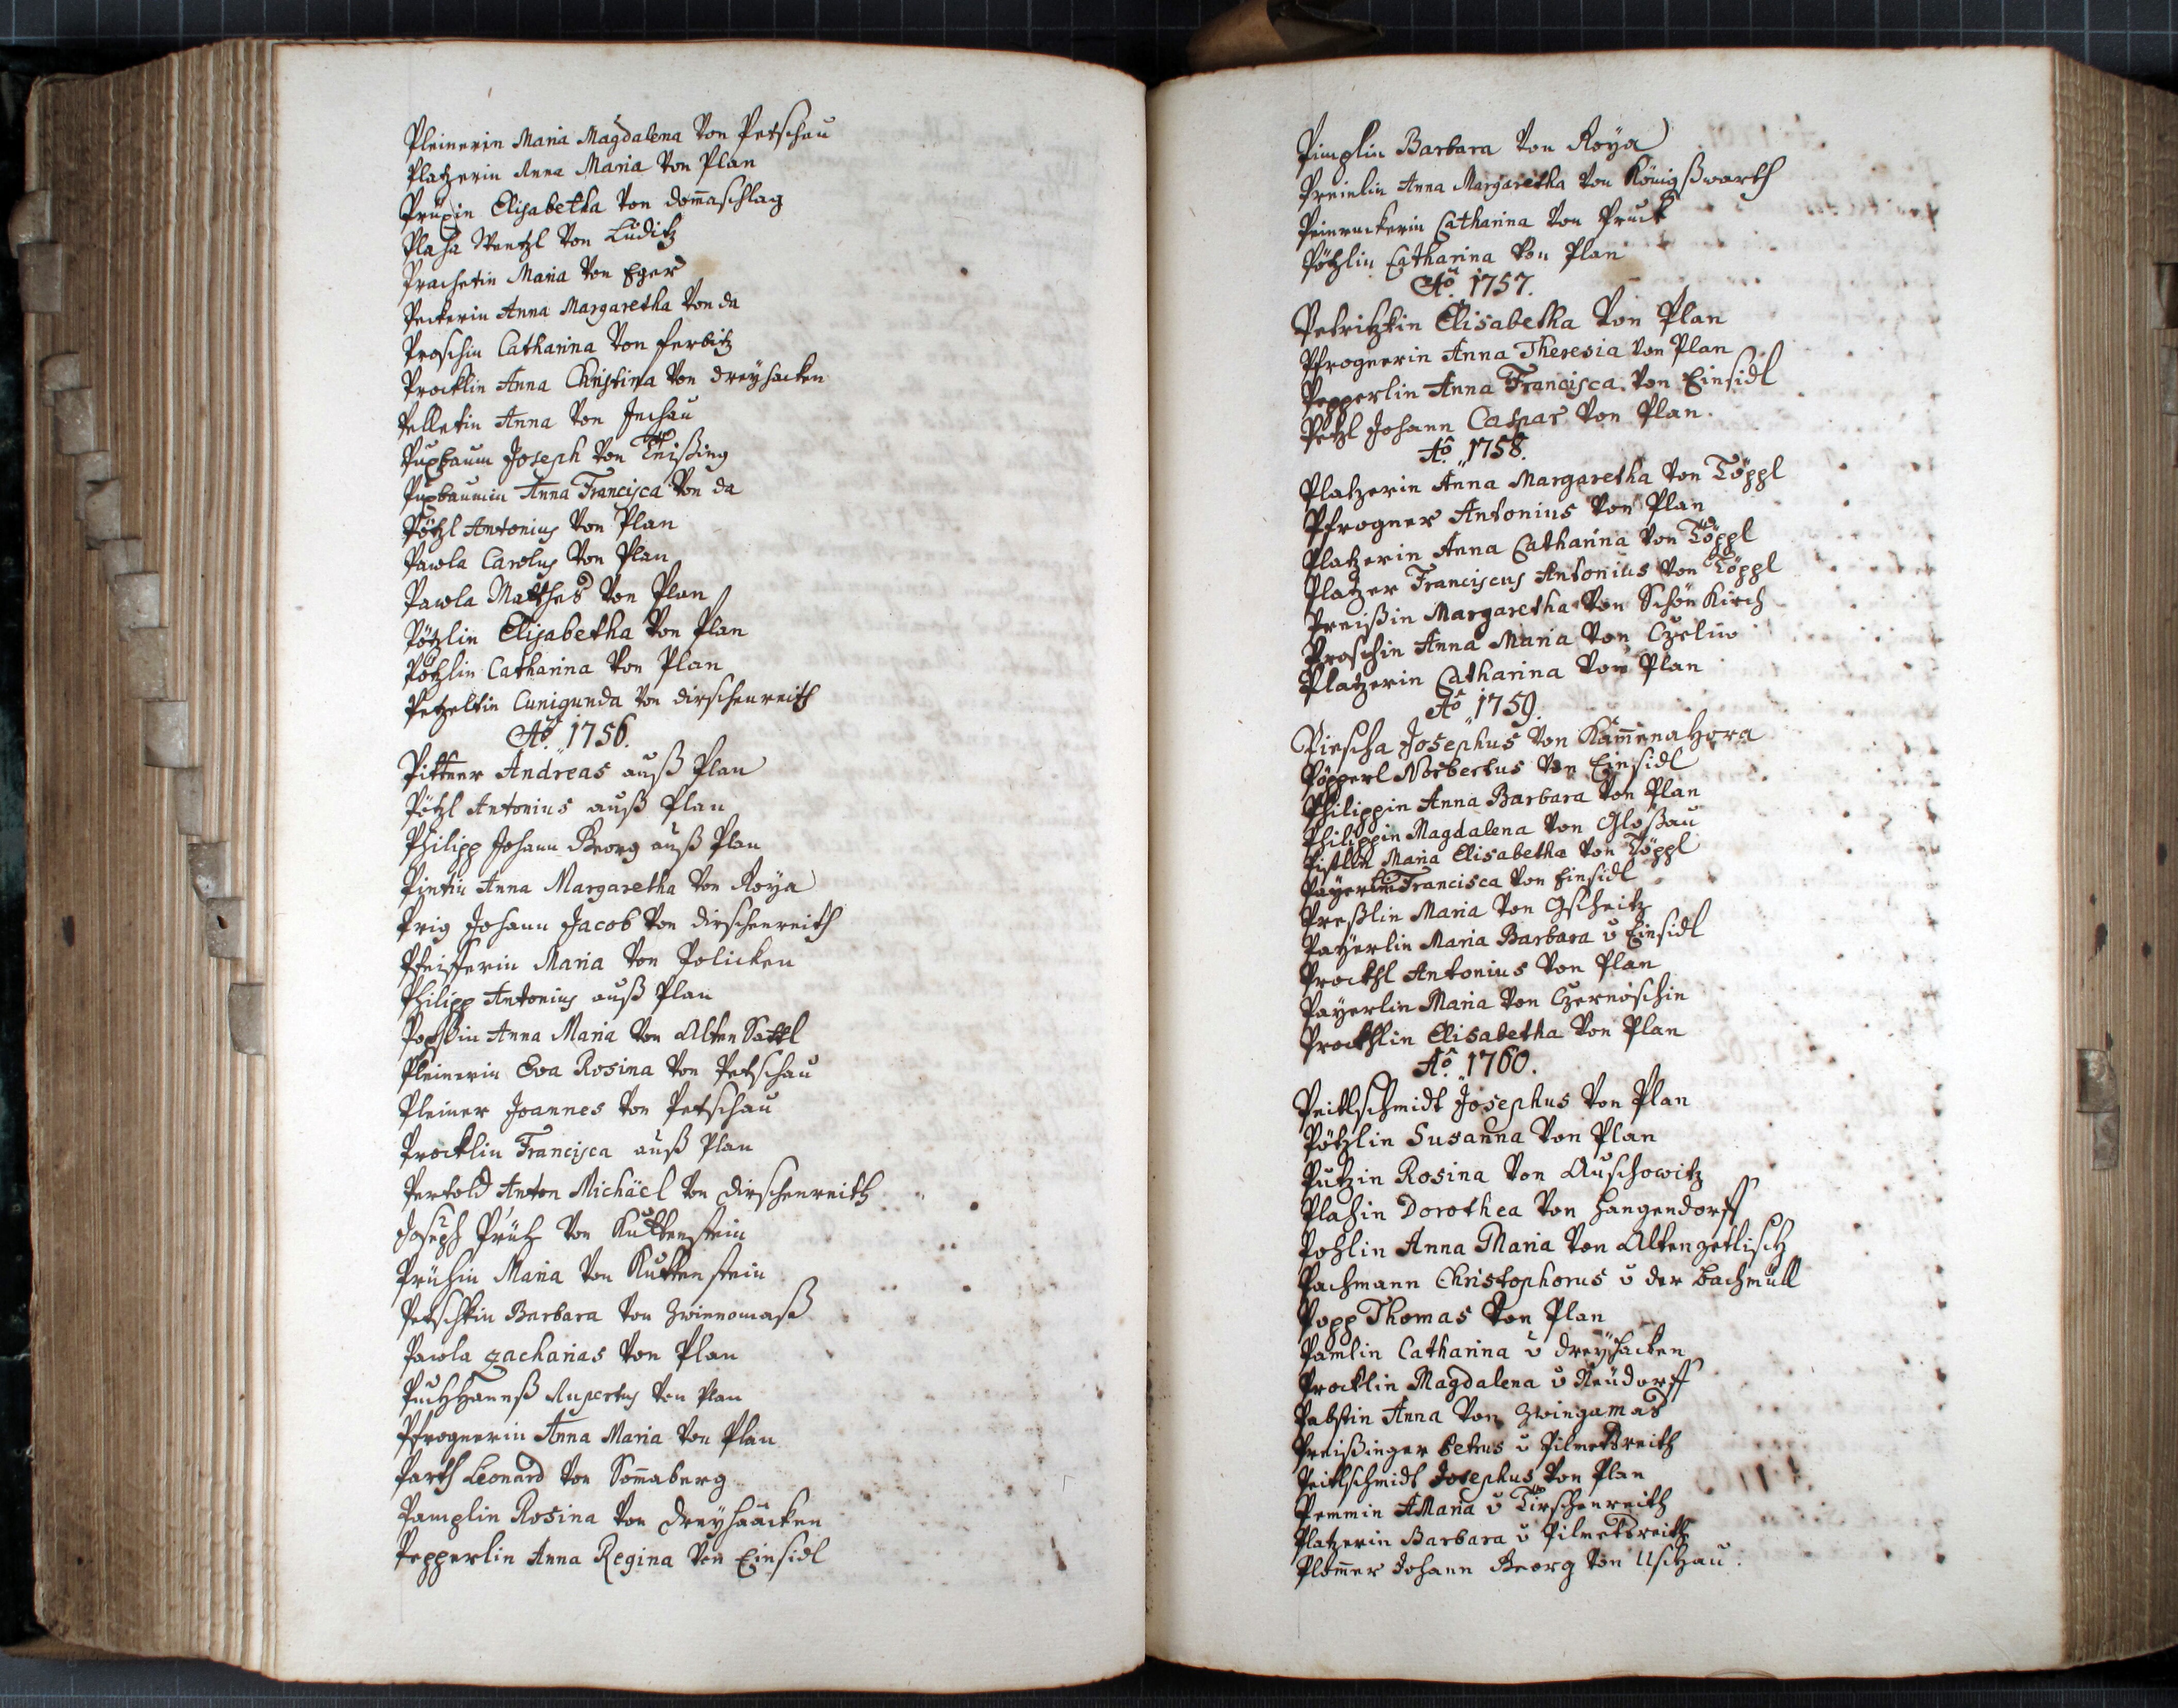 Pleinerin Maria Magdalena Von Petschau
Platzerin Anna Maria Von Plan
Prüxin Elisabetha Von dom̄aschlag
Plaha Wentzl Von Luditz
Prachetin Maria Von Eger
Peckerin Anna Margaretha Von da
Proschin Catharina Von ferbitz
Procklin Anna Christina Von dreyhacken
Pelletin Anna Von Jnchau
Puxbaum Joseph Von Theißing
Puxbaumin Anna Francisca Von da
Pötzl Antonius Von Plan
Pawla Carolus Von Plan
Pawla Mathes Von Plan
Pötzlin Elisabetha Von Plan
Pötzlin Catharina Von Plan
Petzeltin Cunigunda Von dirschenreith
Aõ. 1756.
Pittner Andreas auß Plan
Pötzl Antonius auß Plan
Philipp Johann Georg auß Plan
Pintin Anna Margaretha Von Roÿa
Prig Johann Jacob Von dirschenreith
Pfeifferin Maria Von Policken
Philipp Antonius auß Plan
Popßin Anna Maria Von Alten Sattl
Pleinerin Eva Rosina Von Petschau
Pleiner Joannes Von Petschau
Procklin Francisca auß Plan
Pertold Anton Michäel Von dirschenreith
Joseph Prüh Von Kuttenstein
Prühin Maria Von Kuttenstein
Petschkin Barbara Von
Pawla zacharias Von Plan
Puchhannß Rupertus Von Plan
Pfrognerin Anna Maria Von Plan
Parth Leonard Von Som̄aberg
Pamplin Rosina Von dreyhaacken
Pepperlin Anna Regina Von Einsidl
Pimplin Barbara Von Roÿa
Preinlin Anna Margaretha Von Königßwarth
Peinruckerin Catharina Von Pruck
Pötzlin Catharina Von Plan
Aõ. 1757.
Petritzkin Elisabetha Von Plan
Pfrognerin Anna Theresia Von Plan
Pepperlin Anna Francisca Von Einsidl
Petzl Johann Caspar Von Plan.
Aõ. 1758.
Platzerin Anna Margaretha Von Töppl
Pfrogner Antonius Von Plan
Platzerin Anna Catharina Von Töppl
Platzer Franciscus Antonius Von Töppl
Preißin Margaretha Von Schönkirch
Proschin Anna Maria Von Czeliw
Platzerin Catharina Von Plan
Aõ 1759.
Pirscha Josephus Von Kam̄enahora
Pöpperl Norbertus Von Einsidl
Philippin Anna Barbara Von Plan
Philippin Magdalena Von Gloßau
Pistlin Maria Elisabetha Von Töppl
Paÿerlin Francisca Von Einsidl
Preßlin Maria Von Gscheitz
Paÿerlin Maria Barbara v Einsidl
Prockhl Antonius Von Plan
Paÿerlin Maria Von Czernoschin
Prockhlin Elisabetha Von Plan
Aõ. 1760.
Peitlschmidt Josephus Von Plan
Pötzlin Susanna Von Plan
Putzin Rosina Von Auschowitz
Plahin Dorothea Von Hangendorff
Pohlin Anna Maria Von Altenzetlisch
Pachmann Christophorus v der bachmull
Popp Thomas Von Plan
Pamlin Catharina v dreÿhacken
Procklin Magdalena v Neüdorff
Pabstin Anna Von Zwingamas
Preißinger Petrus v Pilmetsreith
Peitlschmidt Josephus Von Plan
Pemmin AMaria v Tirschenreith
Platzerin Barbara v Pilmetsreith
Plom̄er Johann Georg Von Uschau.